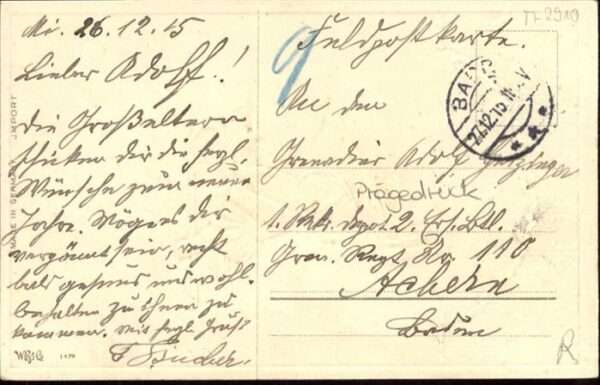 Mi. 26.12.15
Lieber Adolf!
Die Großeltern
schicken dir die herzl.
Wünsche zum neuen
Jahre. Möge es dir
vergönnt sein, recht
bald gesund und wohl-
behalten zu ihnen zu
kommen. Mit herzl. Gruß
MADE IN GERMANY IMPORT
W.R.B.
Feldpostkarte.
An den
Grenadier Adolf
1. Rekr. Depot 2. Ers. Btl.
Gren. Regt. Nr. 110
Achern
Baden
Prägedruck
9
27.12.15
R